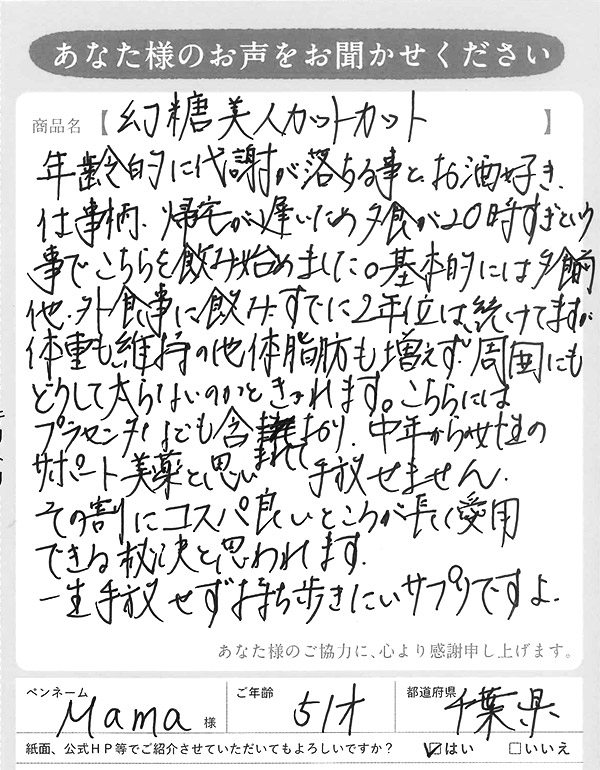 あなた様のお声をお聞かせください
商品名【 幻糖美人カットカット 】
年齢的に代謝が落ちる事と、お酒好き、
仕事柄、帰宅が遅いため夕食が20時すぎという
事でこちらを飲み始めました。基本的には夕食前
他、外食事に飲み、すでに2年位は続けてますが
体重も維持の他体脂肪も増えず、周囲にも
どうして太らないのかときかれます。こちらには
プラセンタなども含まれており、中年から女性の
サポート美薬と思い 手放せません。
その割にコスパ良いところが長く愛用
できる秘決と思われます。
一生手放せず持ち歩きたいサプリですよ。
あなた様のご協力に、心より感謝申し上げます。
ペンネーム Mama 様 ご年齢 51才 都道府県 千葉県
紙面、公式HP等でご紹介させていただいてもよろしいですか? ☑はい □いいえ